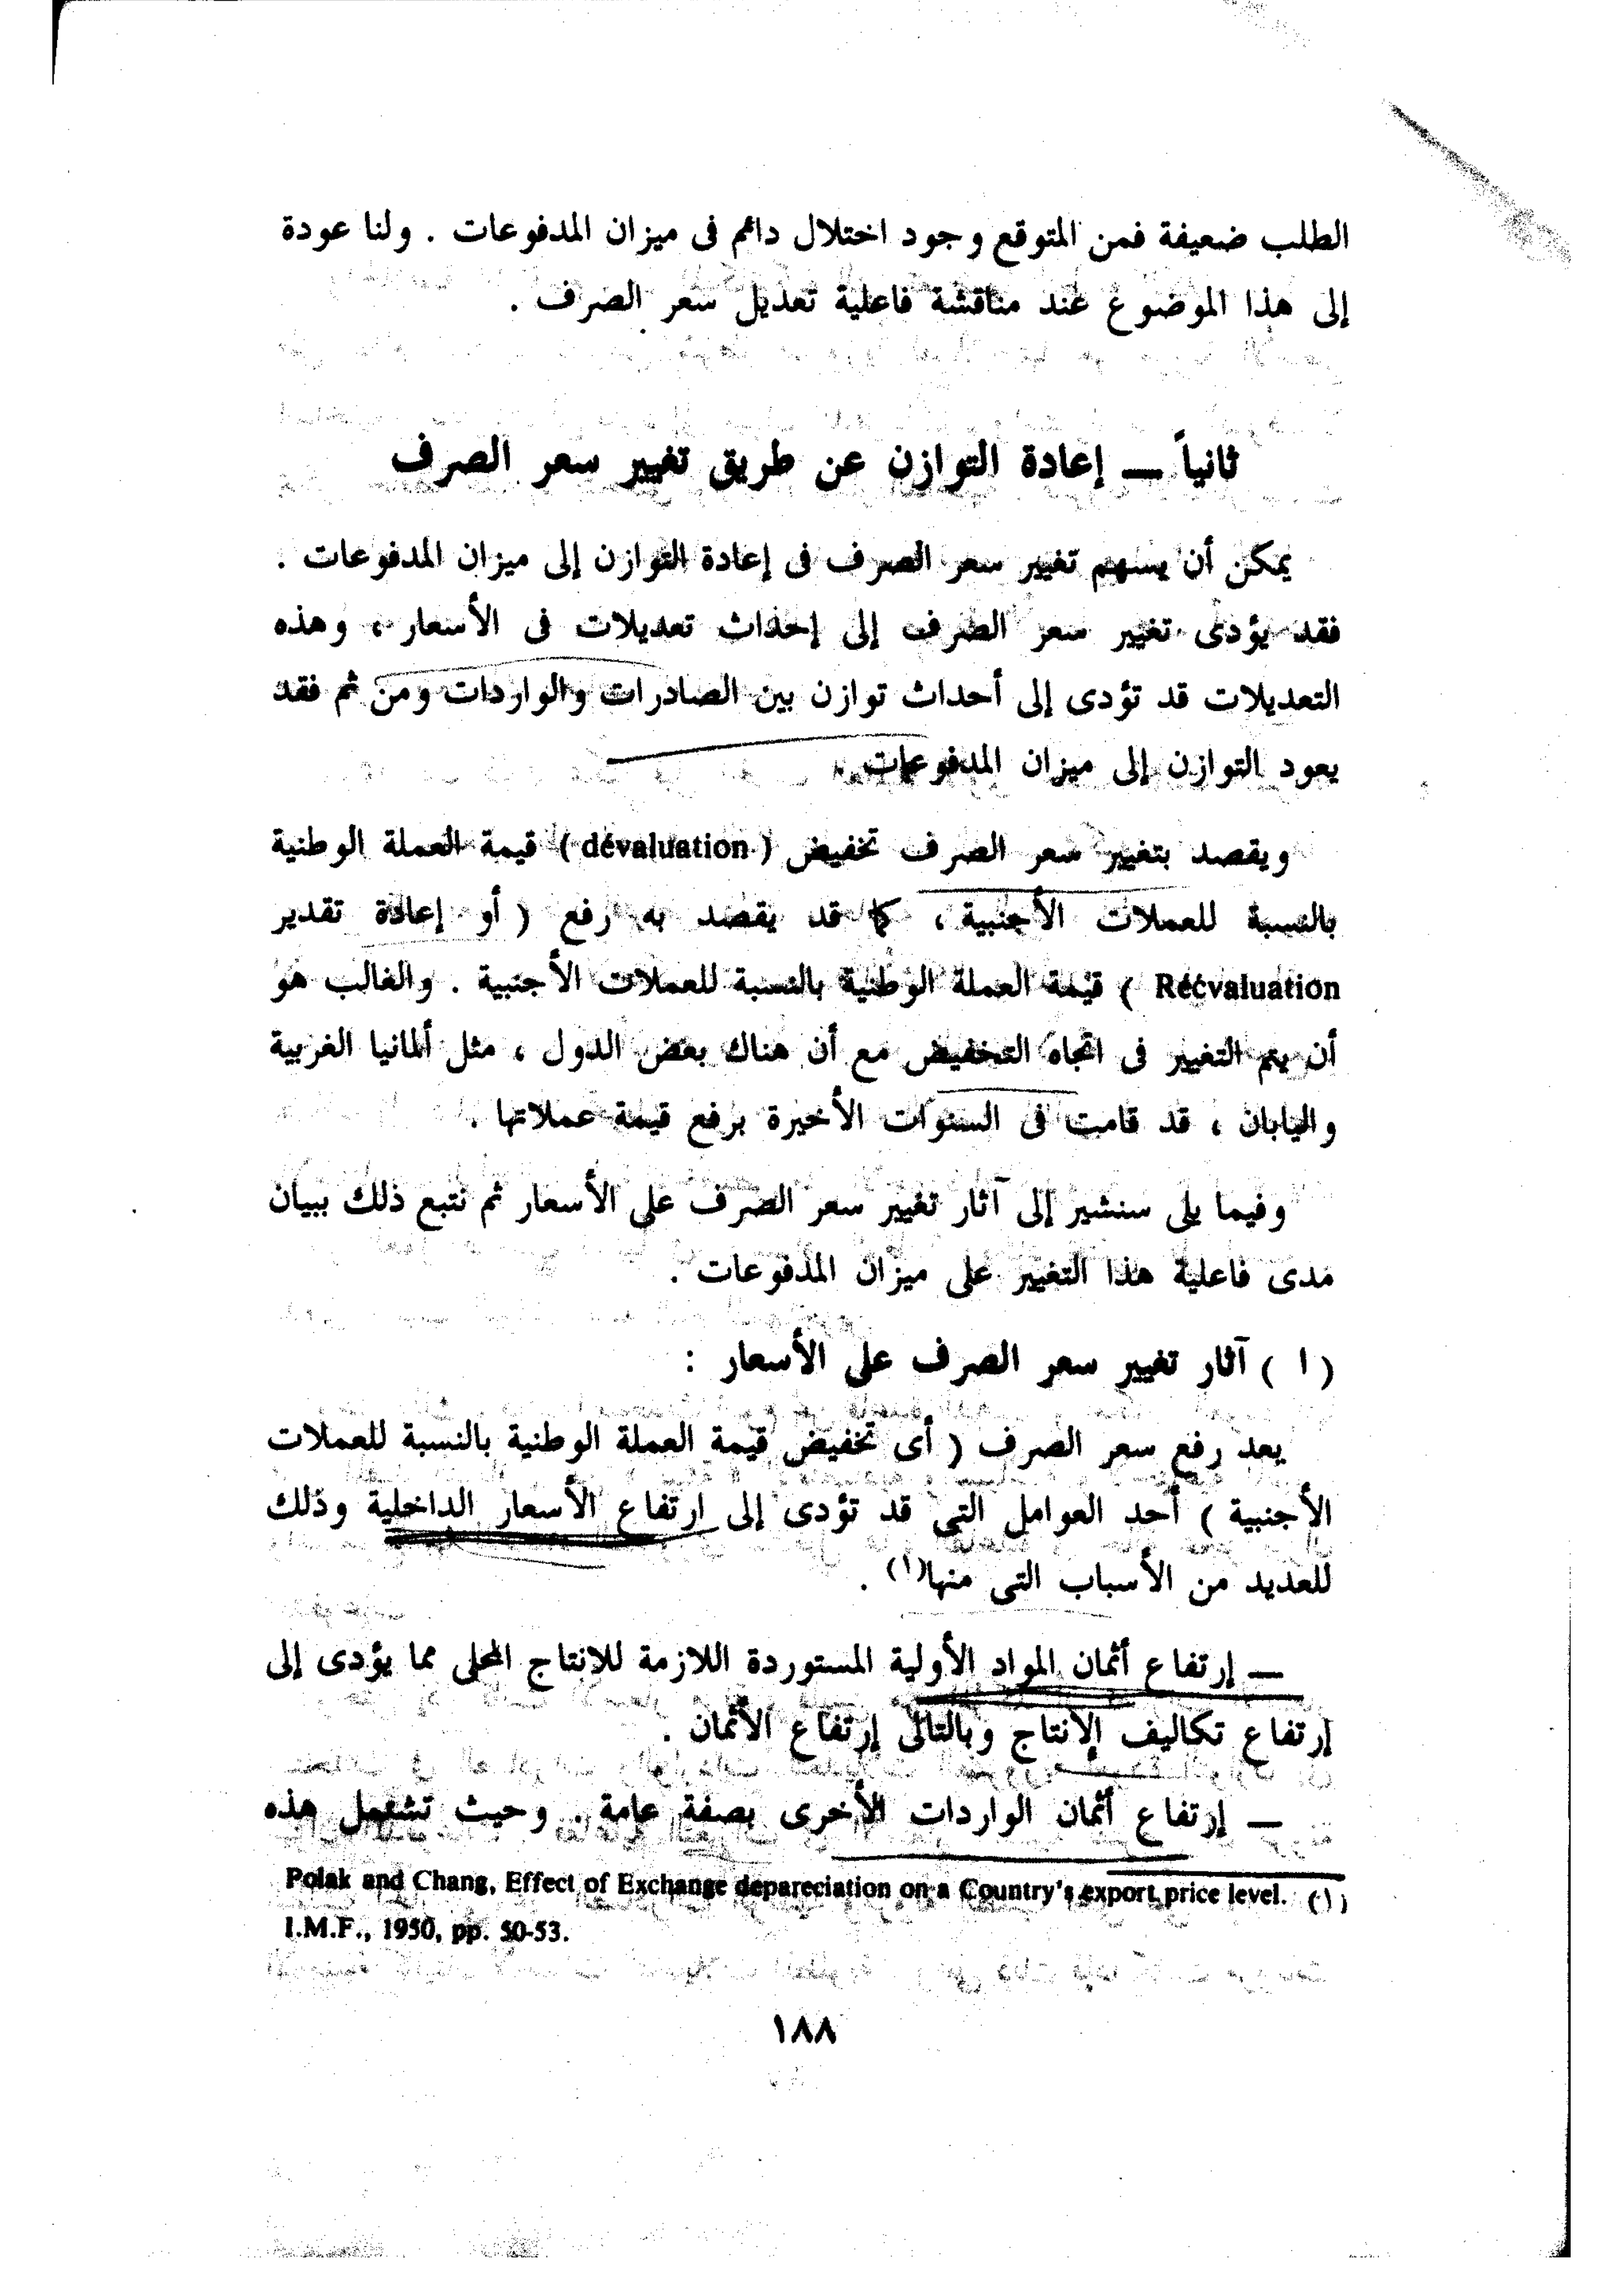 الطلب ضعيفة فمن المتوقع وجود اختلال دائم فى ميزان المدفوعات . ولنا عودة
إلى هذا الموضوع عند مناقشة فاعلية تعديل سعر الصرف .
ثانياً — إعادة التوازن عن طريق تغيير سعر الصرف
يمكن أن يسهم تغيير سعر الصرف فى إعادة التوازن إلى ميزان المدفوعات .
فقد يؤدى تغيير سعر الصرف إلى إحداث تعديلات فى الأسعار ، وهذه
التعديلات قد تؤدى إلى أحداث توازن بين الصادرات والواردات ومن ثم فقد
يعود التوازن إلى ميزان المدفوعات .
ويقصد بتغيير سعر الصرف تخفيض ( dévaluation ) قيمة العملة الوطنية
بالنسبة للعملات الأجنبية ، كما قد يقصد به رفع ( أو إعادة تقدير
Réévaluation ) قيمة العملة الوطنية بالنسبة للعملات الأجنبية . والغالب هو
أن يتم التغيير فى اتجاه التخفيض مع أن هناك بعض الدول ، مثل ألمانيا الغربية
واليابان ، قد قامت فى السنوات الأخيرة برفع قيمة عملاتها .
وفيما يلى سنشير إلى آثار تغيير سعر الصرف على الأسعار ثم نتبع ذلك ببيان
مدى فاعلية هذا التغيير على ميزان المدفوعات .
( ا ) آثار تغيير سعر الصرف على الأسعار :
يعد رفع سعر الصرف ( أى تخفيض قيمة العملة الوطنية بالنسبة للعملات
الأجنبية ) أحد العوامل التى قد تؤدى إلى ارتفاع الأسعار الداخلية وذلك
للعديد من الأسباب التى منها(١) .
— إرتفاع أثمان المواد الأولية المستوردة اللازمة للانتاج المحلى مما يؤدى إلى
إرتفاع تكاليف الإنتاج وبالتالى إرتفاع الأثمان .
— إرتفاع أثمان الواردات الأخرى بصفة عامة . وحيث تشتمل هذه
(١) Polak and Chang, Effect of Exchange depareciation on a Country's export price level.
I.M.F., 1950, pp. 50-53.
١٨٨